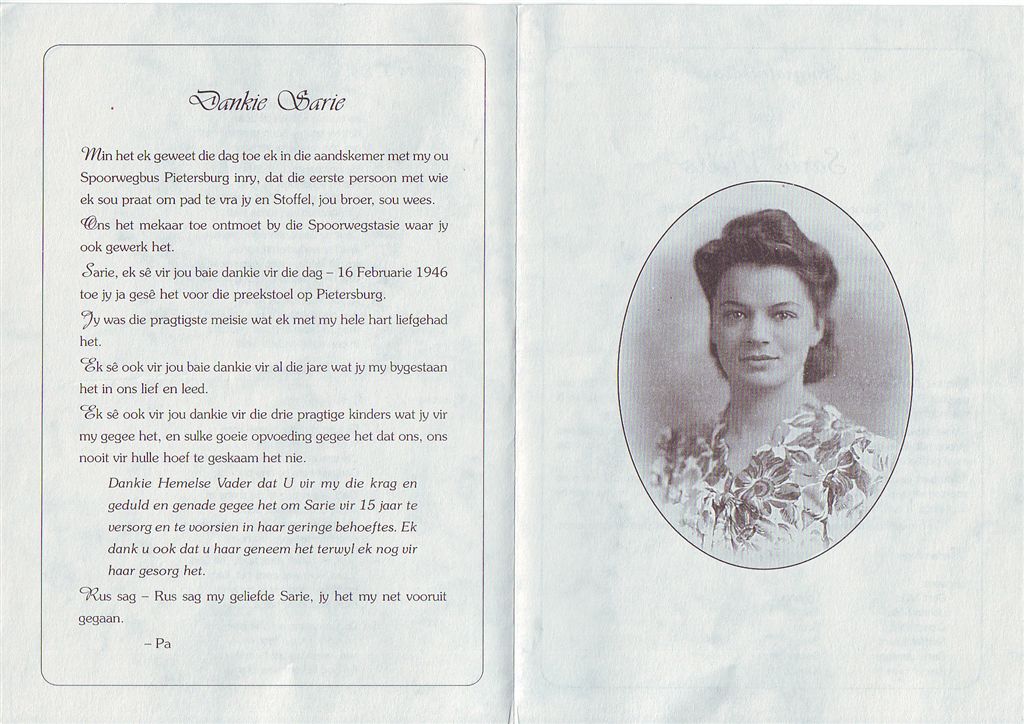 Dankie Sarie
Min het ek geweet die dag toe ek in die aandskemer met my ou
Spoorwegbus Pietersburg inry, dat die eerste persoon met wie
ek sou praat om pad te vra jy en Stoffel, jou broer, sou wees.
Ons het mekaar toe ontmoet by die Spoorwegstasie waar jy
ook gewerk het.
Sarie, ek sê vir jou baie dankie vir die dag – 16 Februarie 1946
toe jy ja gesê het voor die preekstoel op Pietersburg.
Jy was die pragtigste meisie wat ek met my hele hart liefgehad
het.
Ek sê ook vir jou baie dankie vir al die jare wat jy my bygestaan
het in ons lief en leed.
Ek sê ook vir jou dankie vir die drie pragtige kinders wat jy vir
my gegee het, en sulke goeie opvoeding gegee het dat ons, ons
nooit vir hulle hoef te geskaam het nie.
Dankie Hemelse Vader dat U vir my die krag en
geduld en genade gegee het om Sarie vir 15 jaar te
versorg en te voorsien in haar geringe behoeftes. Ek
dank u ook dat u haar geneem het terwyl ek nog vir
haar gesorg het.
Rus sag – Rus sag my geliefde Sarie, jy het my net vooruit
gegaan.
– Pa